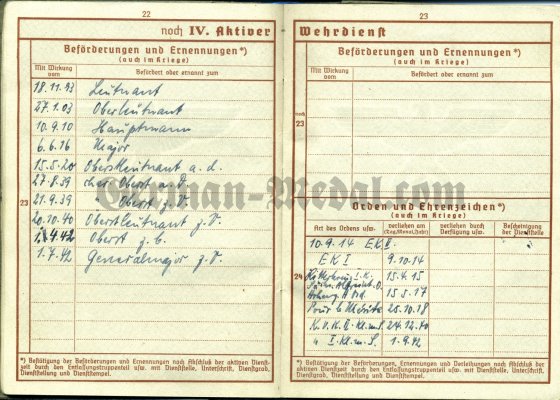 22
noch IV. Aktiver
Beförderungen und Ernennungen*)
(auch im Kriege)
Mit Wirkung vom
Befördert oder ernannt zum
18.11.93 Leutnant
27.1.03 Oberleutnant
10.9.10 Hauptmann
6.6.16 Major
15.5.20 Oberstleutnant a.d.
27.8.39 char. Oberst a.D.
21.9.39 " Oberst z.V.
20.10.40 Oberstleutnant z.V.
1.4.42 Oberst z.V.
1.7.42 Generalmajor z.V.
23
*) Bestätigung der Beförderungen und Ernennungen nach Abschluß der aktiven Dienst-
zeit durch den Entlassungstruppenteil usw. mit Dienststelle, Unterschrift, Dienstgrad,
Dienststellung und Dienststempel.
23
Wehrdienst
Beförderungen und Ernennungen*)
(auch im Kriege)
Mit Wirkung vom
Befördert oder ernannt zum
noch
23
Orden und Ehrenzeichen*)
(auch im Kriege)
Art des Ordens usw.
verliehen am
(Tag, Monat, Jahr)
verliehen durch
Verfügung usw.
Bescheinigung
der Dienststelle
10.9.14 EK II.
EK I 9.10.14
24
15.4.15
15.5.17
Pour le Mérite 25.10.18
K.V.K. II. Kl. m. S. 24.12.40
" I. Kl. m. S. 1.9.42
*) Bestätigung der Beförderungen, Ernennungen und Verleihungen nach Abschluß der
aktiven Dienstzeit durch den Entlassungstruppenteil usw. mit Dienststelle, Unterschrift,
Dienstgrad, Dienststellung und Dienststempel.
German-Medal.com